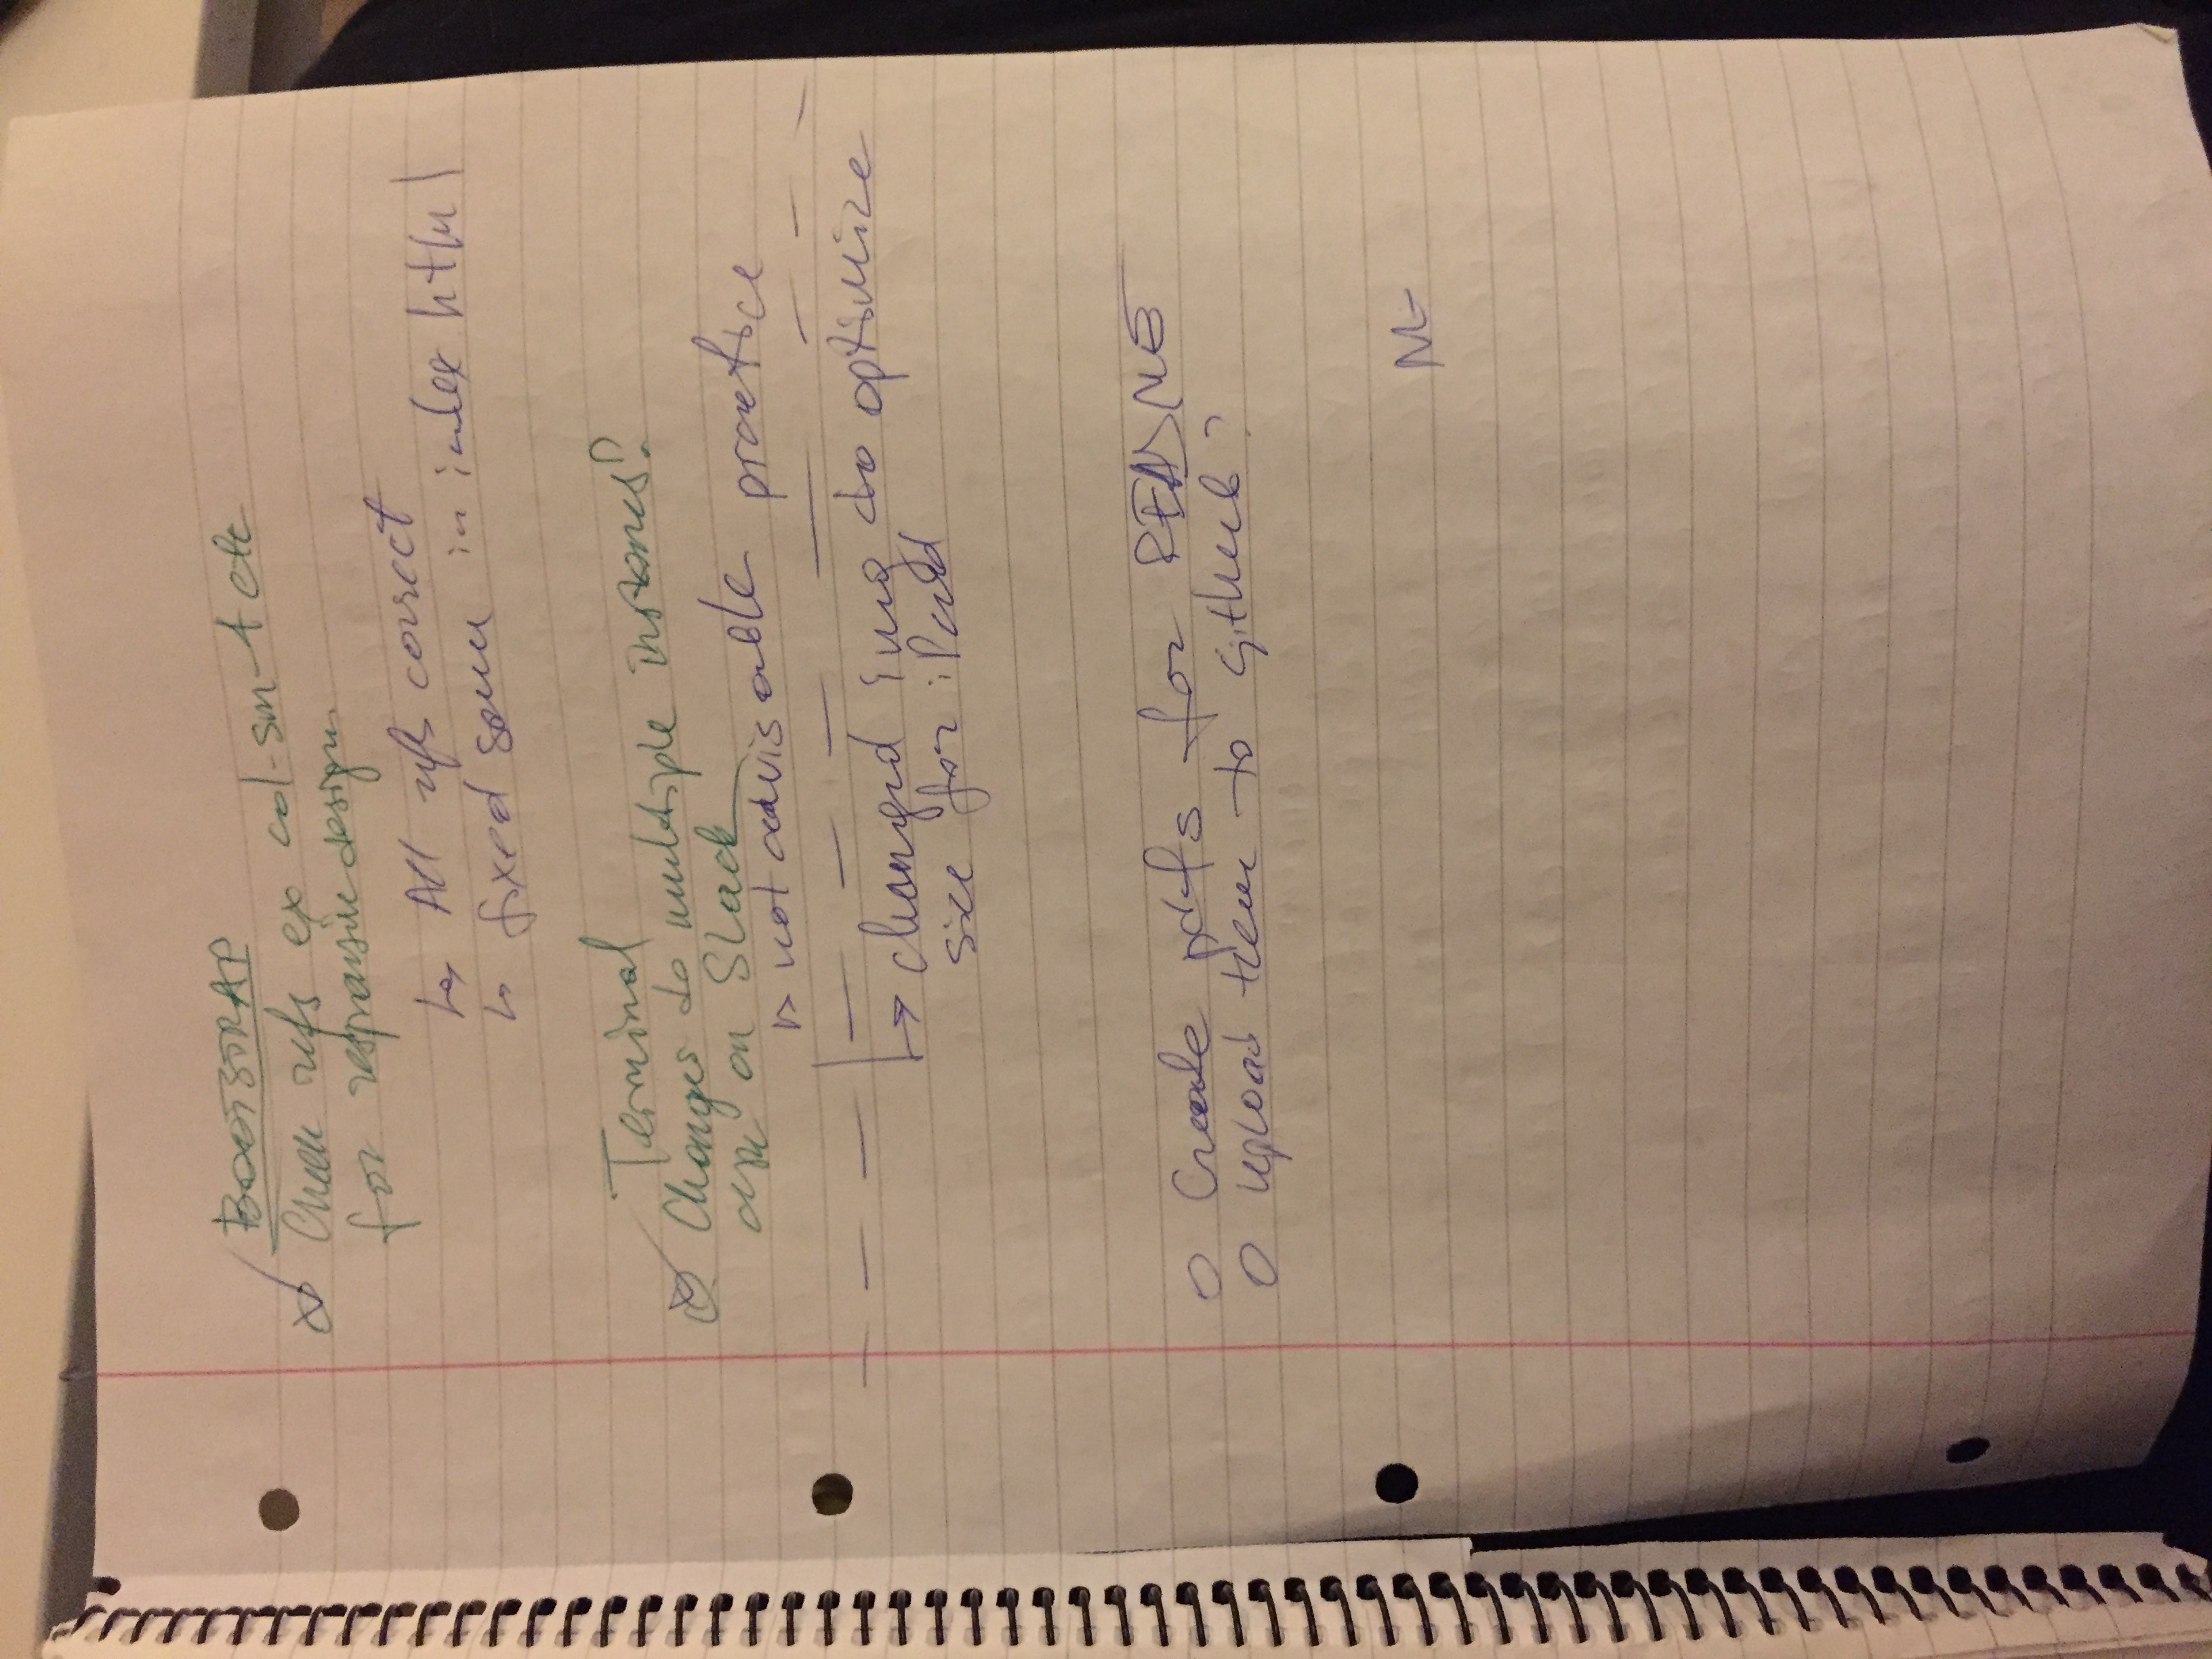 BOOTSTRAP
Check refs ex col-sm-4 etc
for responsive design
↳ All refs correct
↳ fixed some in index html
Terminal
Changes to multiple instances?
ask on Slack
↳ not advisable practice
↳ changed img to optimize
size for iPad
O Create pdfs for README
O upload them to github?